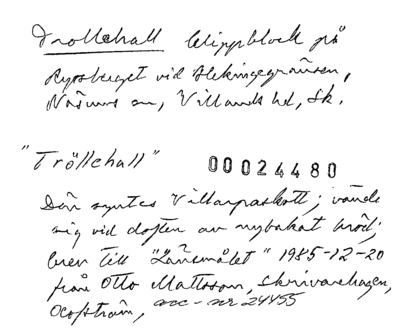 Trollehall klippblock på
Rysberget vid Blekingegränsen,
Näsums sn, Villands hd, Sk.
"Tröllehall"
00024480
Där syntes Villarpaskott; vände
sig vid doften av nybakat bröd;
brev till "Länsmålet" 1985-12-20
från Otto Mattsson, Skrivarehagen,
Olofström, acc-nr 24455